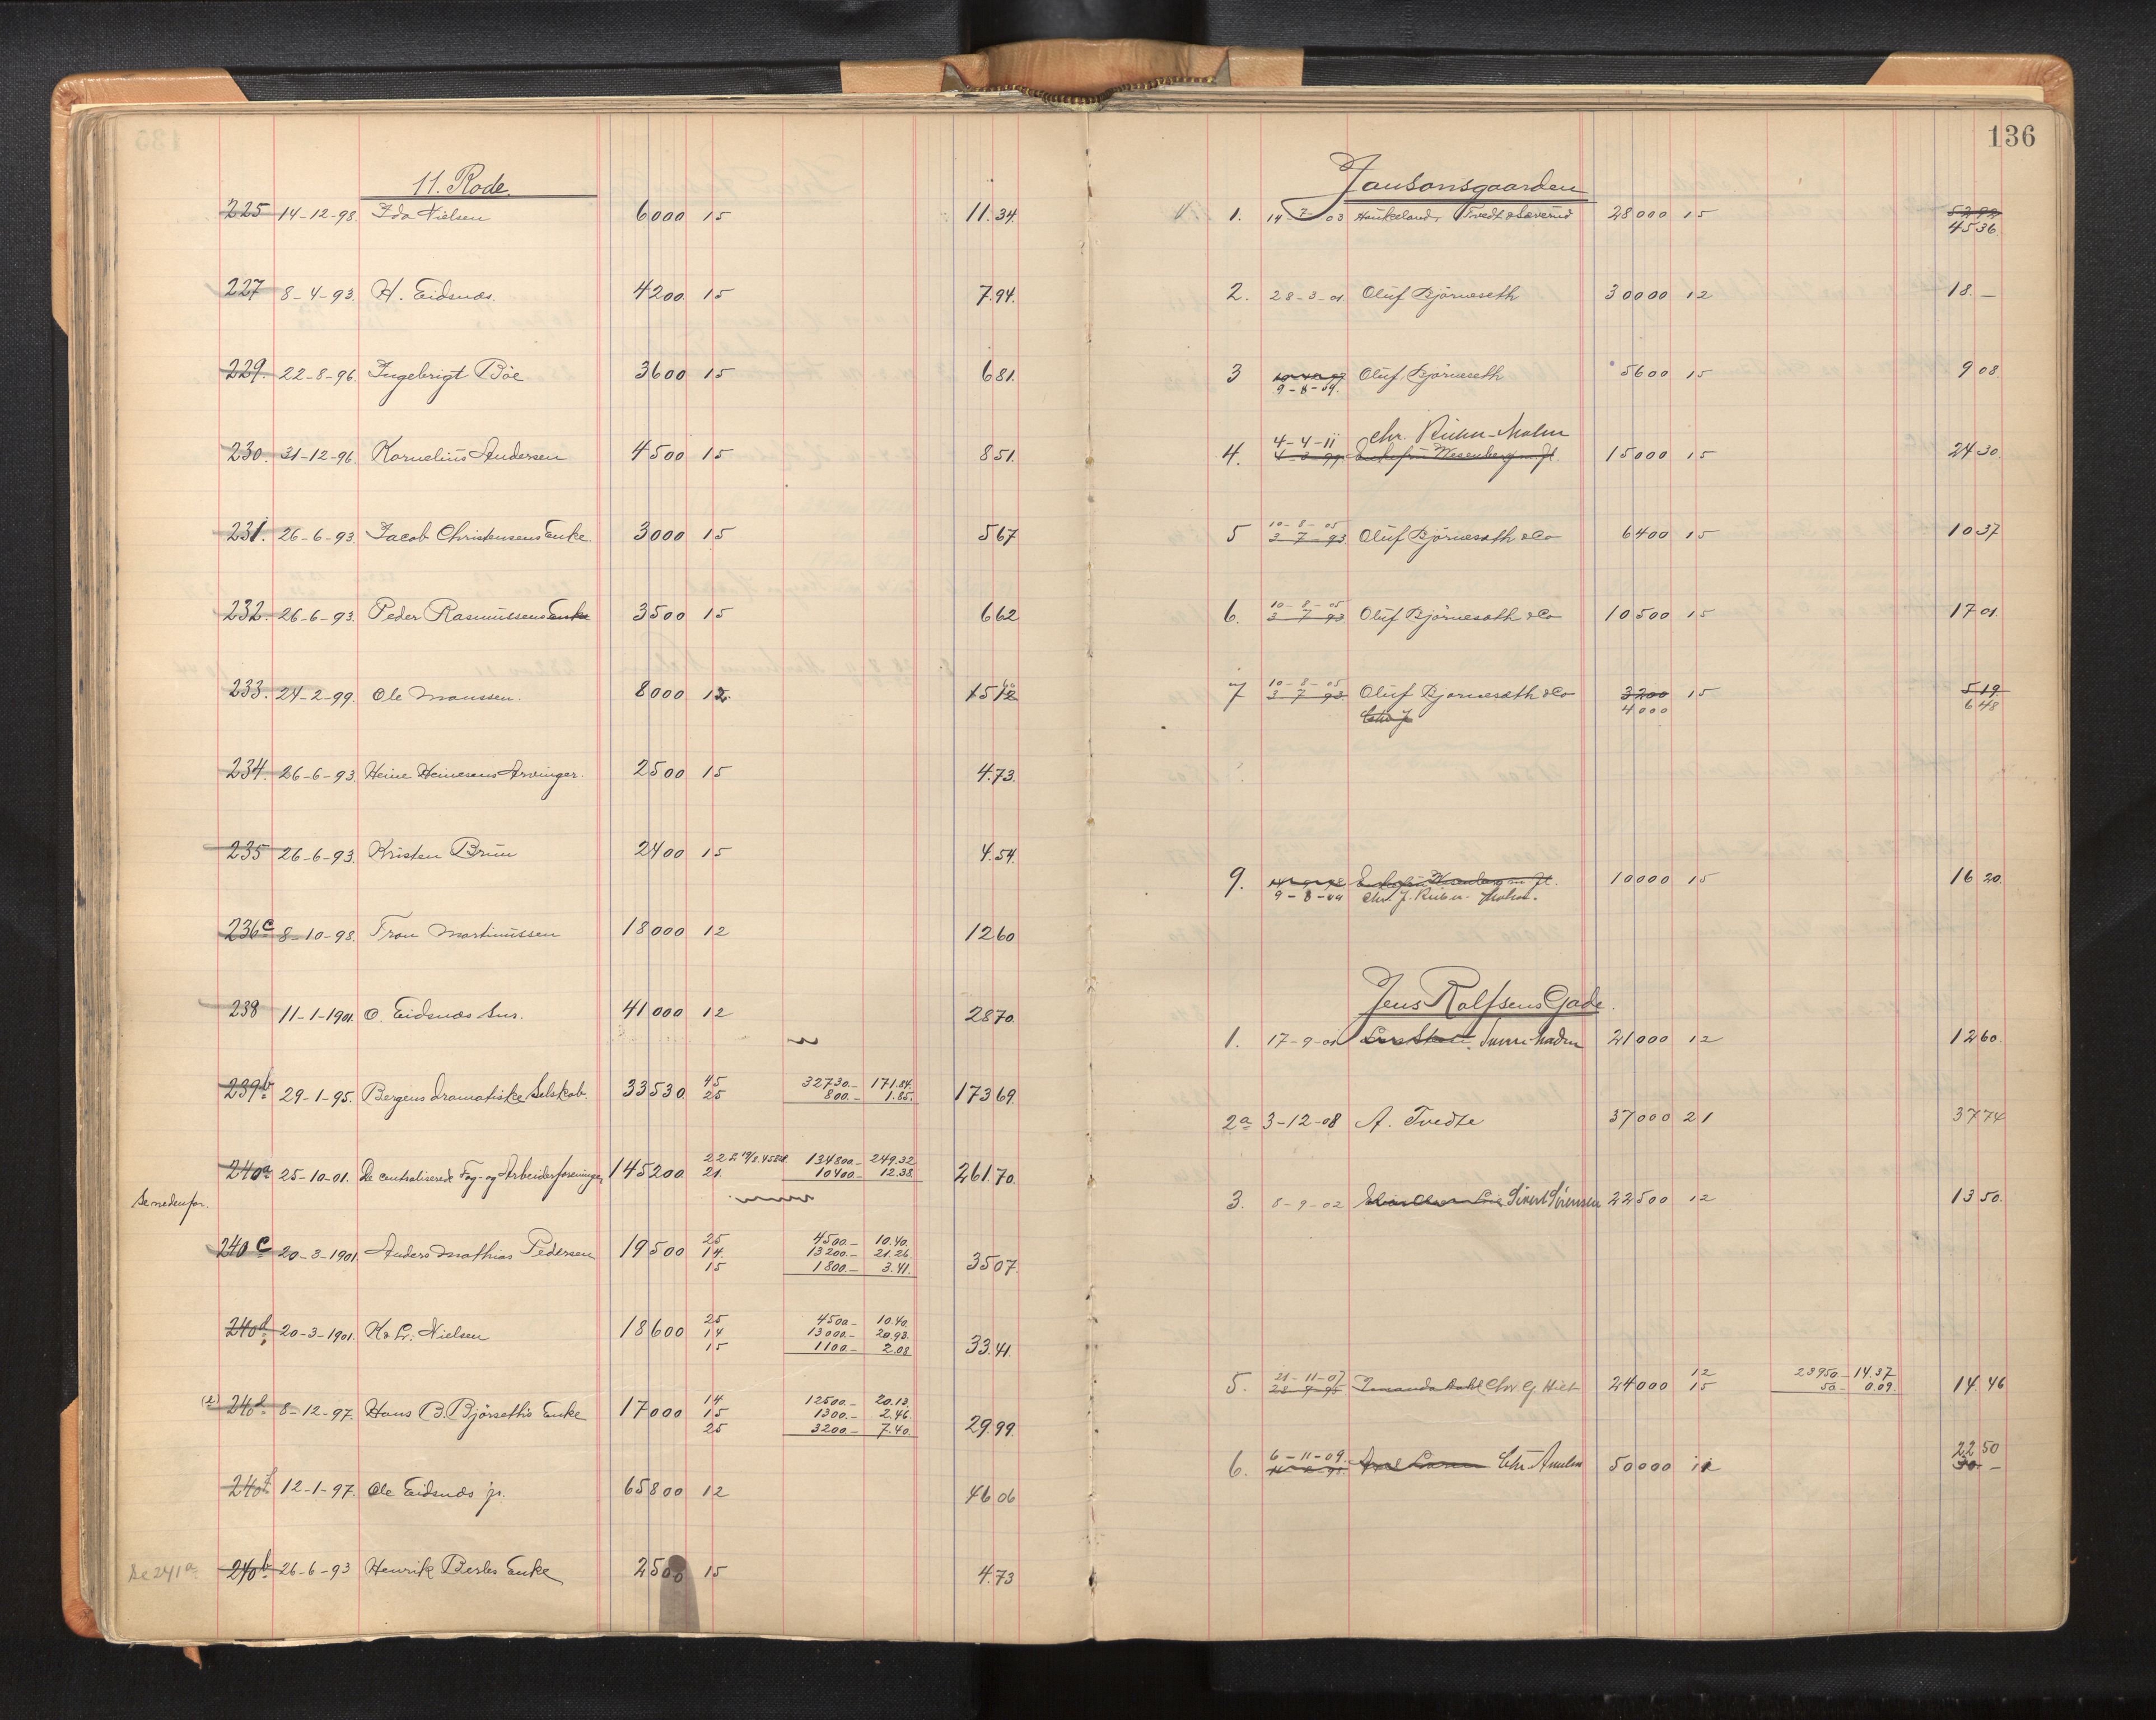 11. Rode.
225 14-12-98. Ida Nielsen 6000 15 11.34.
227 8-4-93. H. Eidsnæs. 4200 15 7.94.
229. 22-8-96. Ingebrigt Böe 3600 15 681.
230. 31-12-96. Kornelius Andersen 4500 15 851.
231. 26-6-93. Jacob Christensens Enke 3000 15 567
232. 26-6-93. Peder Rasmussens Enke 3500 15 662
233. 24-2-99. Ole Monssen. 8000 12.
234. 26-6-93. Heine Heinesens Arvinger. 2500 15 4.73.
235 26-6-93. Kristen Brun 2400 15 4.54.
236c 8-10-98. Martinussen 18000 12 1260
238 11-1-1901. O. Eidsnæs Snr. 41000 12 2870.
239b 29-1-95. Bergens dramatiske Selskab. 33530 45 32730.- 171.84. 17369
25 800.- 1.85.
240a 25-10-01. De centraliserede Fag- og Arbeiderforeninger 145200 22 134800.- 249.32 261.70.
21. 10400.- 12.38.
Se nedenfor.
240c 20-3-1901. Anders Mathias Pedersen 19500 25 4500.- 10.40. 3507.
14. 13200.- 21.26.
15 1800.- 3.41.
240d 20-3-1901. K. L. Nielsen 18600 25 4500.- 10.40. 33.41.
14 13000.- 20.93.
15 1100.- 2.08
(2) 240d 8-12-97. Hans B. Björseths Enke 17000 14 12500.- 20.13. 29.99.
15 1300.- 2.46.
25 3200.- 7.40.
240f 12-1-97. Ole Eidsnæs jr. 65800 12 4606
Se 241a. 240b 26-6-93 Henrik Berles Enke 2500 15 4.73
136
Jansonsgaarden
1. 14-7-03 Haukeland, Tvedt & Severud 28000 15 5292
4536.
2. 28-3-01. Oluf Björneseth 30000 12 18.-
3 9-8-09. Oluf Björneseth 5600 15 908
4. 4-4-11 Chr. Rieber-Malm 15000 15 2430.
4-3-99.
5 10-8-05 Oluf Björneseth & Co 6400 15 1037
3-7-93.
6. 10-8-05 Oluf Björneseth & Co 10500 15 1701.
3-7-93
7 10-8-05 Oluf Björneseth & Co 3200 15 519
3-7-93 4000 648
9. 10000 15 1620.
9-8-
Jens Rolfsens Gade.
1. 17-9-01 21000 12 1260.
2a 3-12-08 A. Tvedte 37000 21 3774
3. 8-9-02 Sivert Sörensen 22500 12 1350.
5. 21-11-07 24000 12 23950.- 14.37 14.46
28-9-95 15 50.- 0.09.
6. 6-11-09. 50000 22 50
30.-